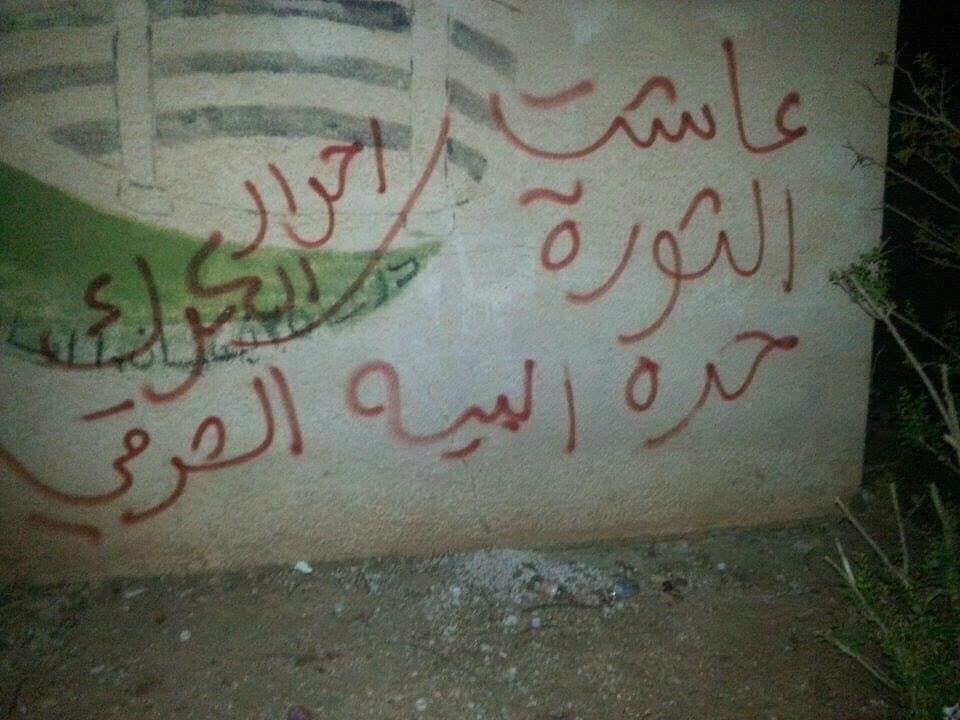 عاشت
الثورة
حره ابيه الشرقي
احرار
الكرك